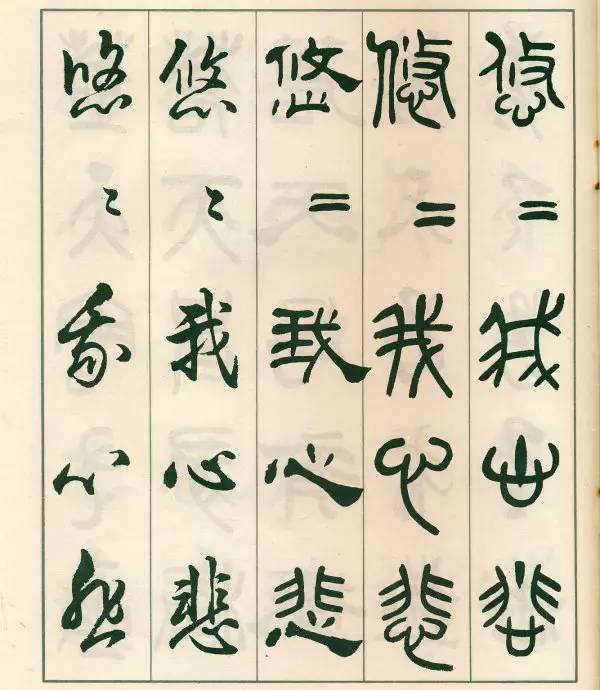 悠〻我心悲
悠〻我心悲
悠〻我心悲
悠〻我心悲
悠〻我心悲